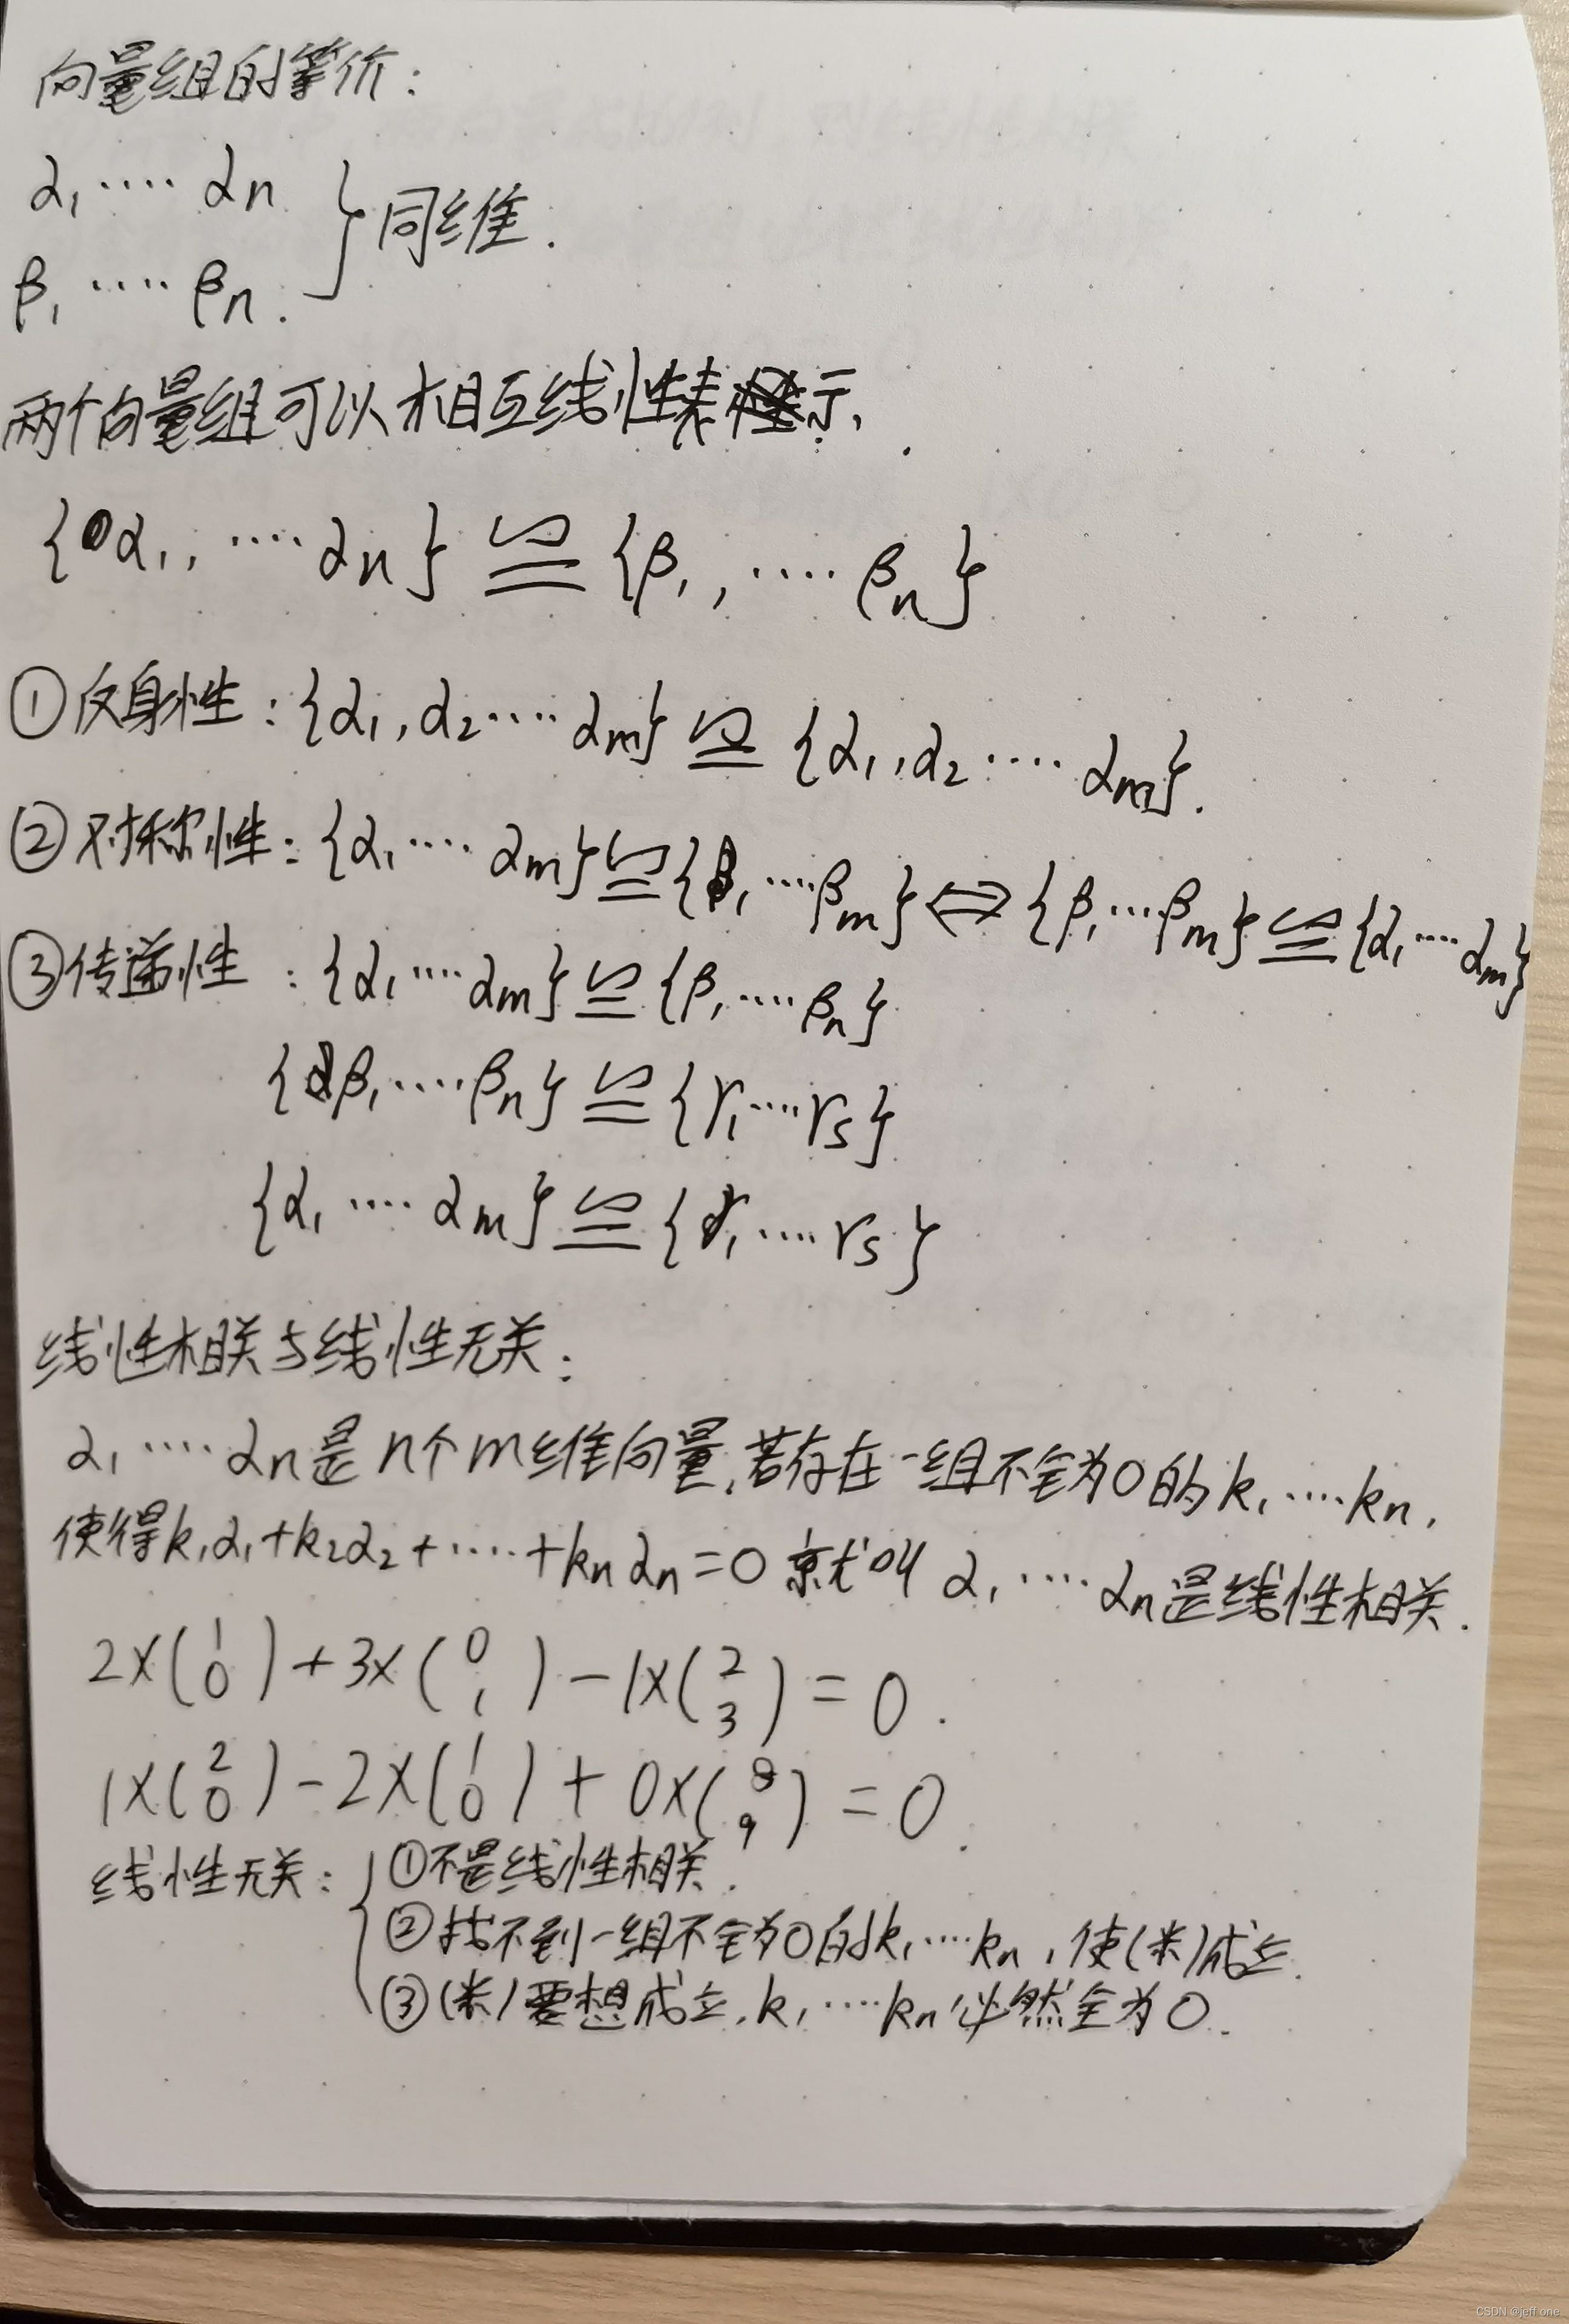 向量组的等价:
α₁ ···· αn } 同维.
β₁ ···· βn.
两个向量组可以相互线性表示.
{α₁, ···· αn} ≌ {β₁, ···· βn}
①反身性:{α₁, α₂ ···· αm} ≌ {α₁, α₂ ···· αm}.
②对称性:{α₁ ···· αm} ≌ {β₁ ···· βm} ⇔ {β₁ ··· βm} ≌ {α₁ ···· αm}
③传递性:{α₁ ···· αm} ≌ {β₁ ···· βn}
{β₁ ···· βn} ≌ {γ₁ ···· γs}
{α₁ ···· αm} ≌ {γ₁ ···· γs}
线性相关与线性无关:
α₁ ···· αn是n个m维向量,若存在一组不全为0的k₁ ···· kn,
使得k₁α₁+k₂α₂+····+knαn=0 就叫 α₁ ···· αn是线性相关.
2×(1 0)+3×(0 1)-1×(2 3)=0.
1×(2 0)-2×(1 0)+0×(8 9)=0.
线性无关:{ ①不是线性相关.
②找不到一组不全为0的k₁ ···· kn,使(米)成立.
③(米)要想成立,k₁ ···· kn必然全为0.
CSDN @jeff one